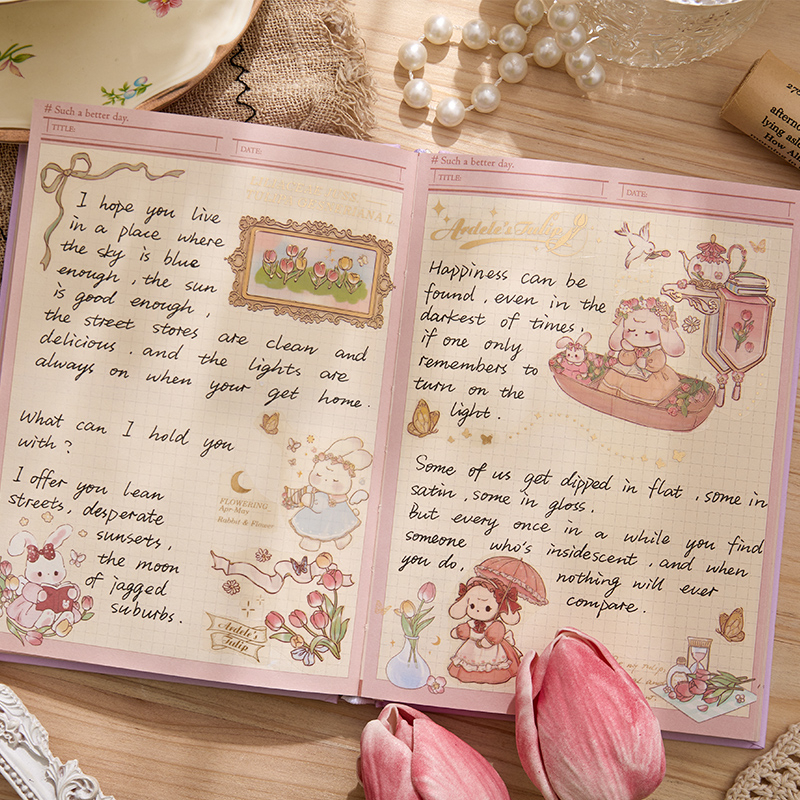 # Such a better day.
TITLE:
DATE:
I hope you live
in a place where
the sky is blue
enough, the sun
is good enough,
the street stores are clean and
delicious. and the lights are
always on when your get home.
What can I hold you
with?
I offer you lean
streets, desperate
sunsets,
the moon
of jagged
suburbs.
FLOWERING
Apr-May
Rabbit & Flower
Ardele's
Tulip
# Such a better day.
TITLE:
DATE:
Ardele's Tulip
Happiness can be
found, even in the
darkest of times,
if one only
remembers to
turn on the
light.
Some of us get dipped in flat, some in
satin, some in gloss.
But every once in a while you find
someone who's insidescent, and when
you do, nothing will ever
compare.
afternoon
How